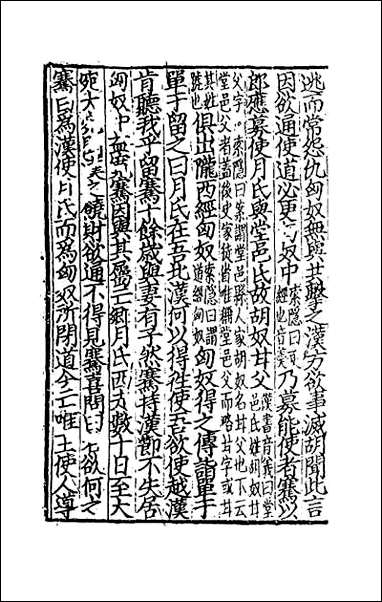 逃而常怨仇匈奴無與共擊之漢方欲事滅胡聞此言
因欲通使道必更奴中索隱曰更經也音羹乃募能使者騫以
郎應募使月氏與堂邑氏故胡奴甘父漢書音義曰堂邑氏姓胡奴甘
父字索隱曰案謂堂邑縣人家胡奴名甘父也下云堂邑父者蓋後史家從省唯稱堂邑父而略甘字或甘
其姓號也俱出隴西經匈奴索隱曰謂道經匈奴匈奴得之傳詣單于
單于留之曰月氏在吾北漢何以得往使吾欲使越漢
肯聽我乎留騫十餘歲與妻有子然騫持漢節不失居
匈奴中益寬騫因與其屬亡鄉月氏西走數十日至大
宛大之饒財欲通不得見騫喜問曰欲何之
騫曰爲漢使月氏而爲匈奴所閉道今亡唯王使人導